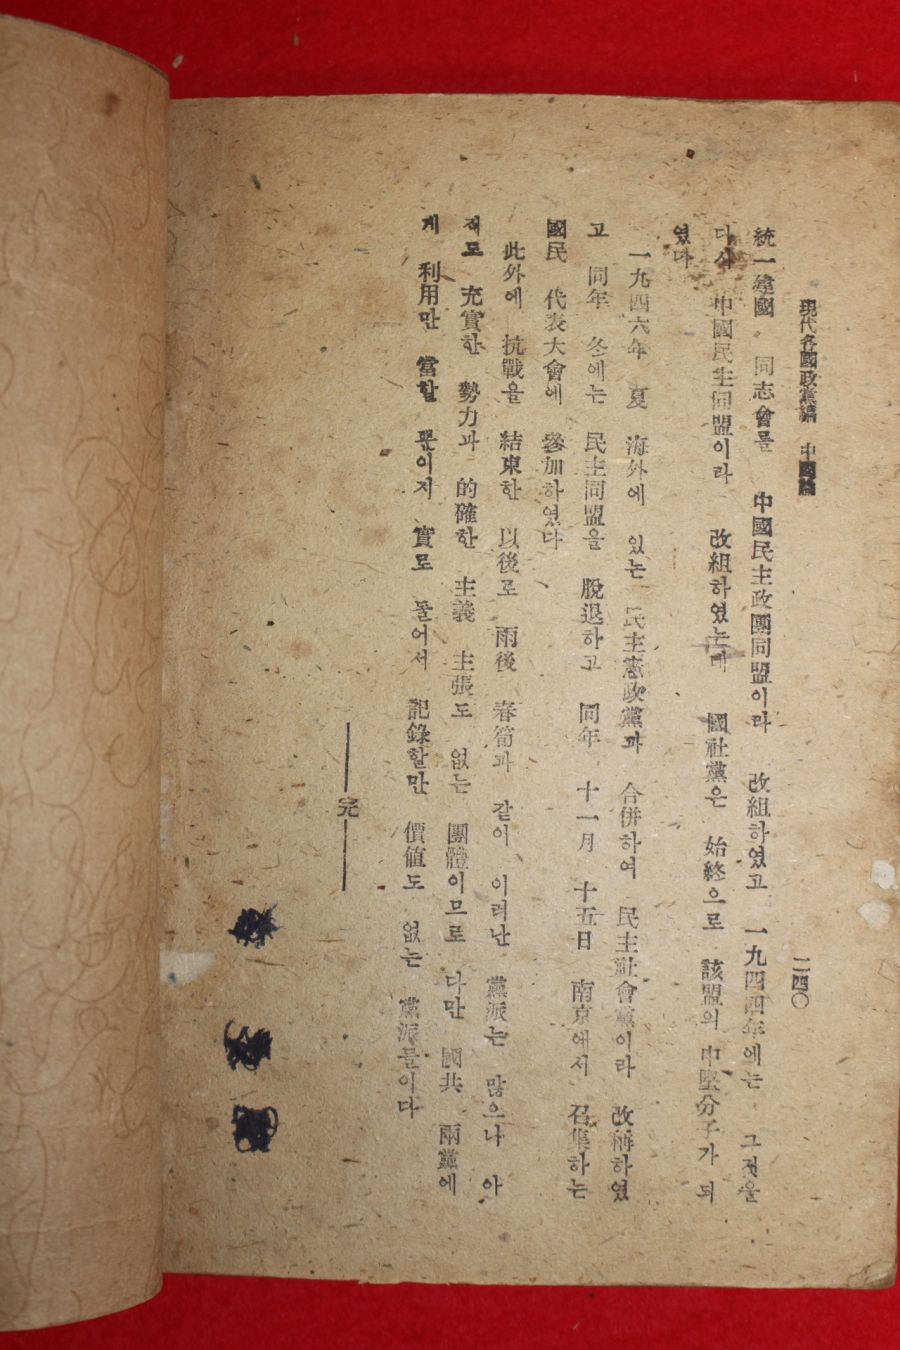 現代各國政黨編 中國編
二四〇
統一建國 同志會를 中國民主政團同盟이라 改組하였고 一九四四年에는 그것을
다시 中國民主同盟이라 改組하였는데 國社黨은 始終으로 該盟의 中堅分子가 되
였다
一九四六年 夏 海外에 있는 民主憲政黨과 合併하여 民主社會黨이라 改稱하였
고 同年 冬에는 民主同盟을 脫退하고 同年 十一月 十五日 南京에서 召集하는
國民 代表大會에 參加하였다
此外에 抗戰을 結束한 以後로 雨後 春筍과 같이 이러난 黨派는 많으나 아
직도 充實한 勢力과 的確한 主義 主張도 없는 團體이므로 다만 國共 兩黨에
게 利用만 當할 뿐이지 實로 들어서 記錄할만 價値도 없는 黨派들이다
完